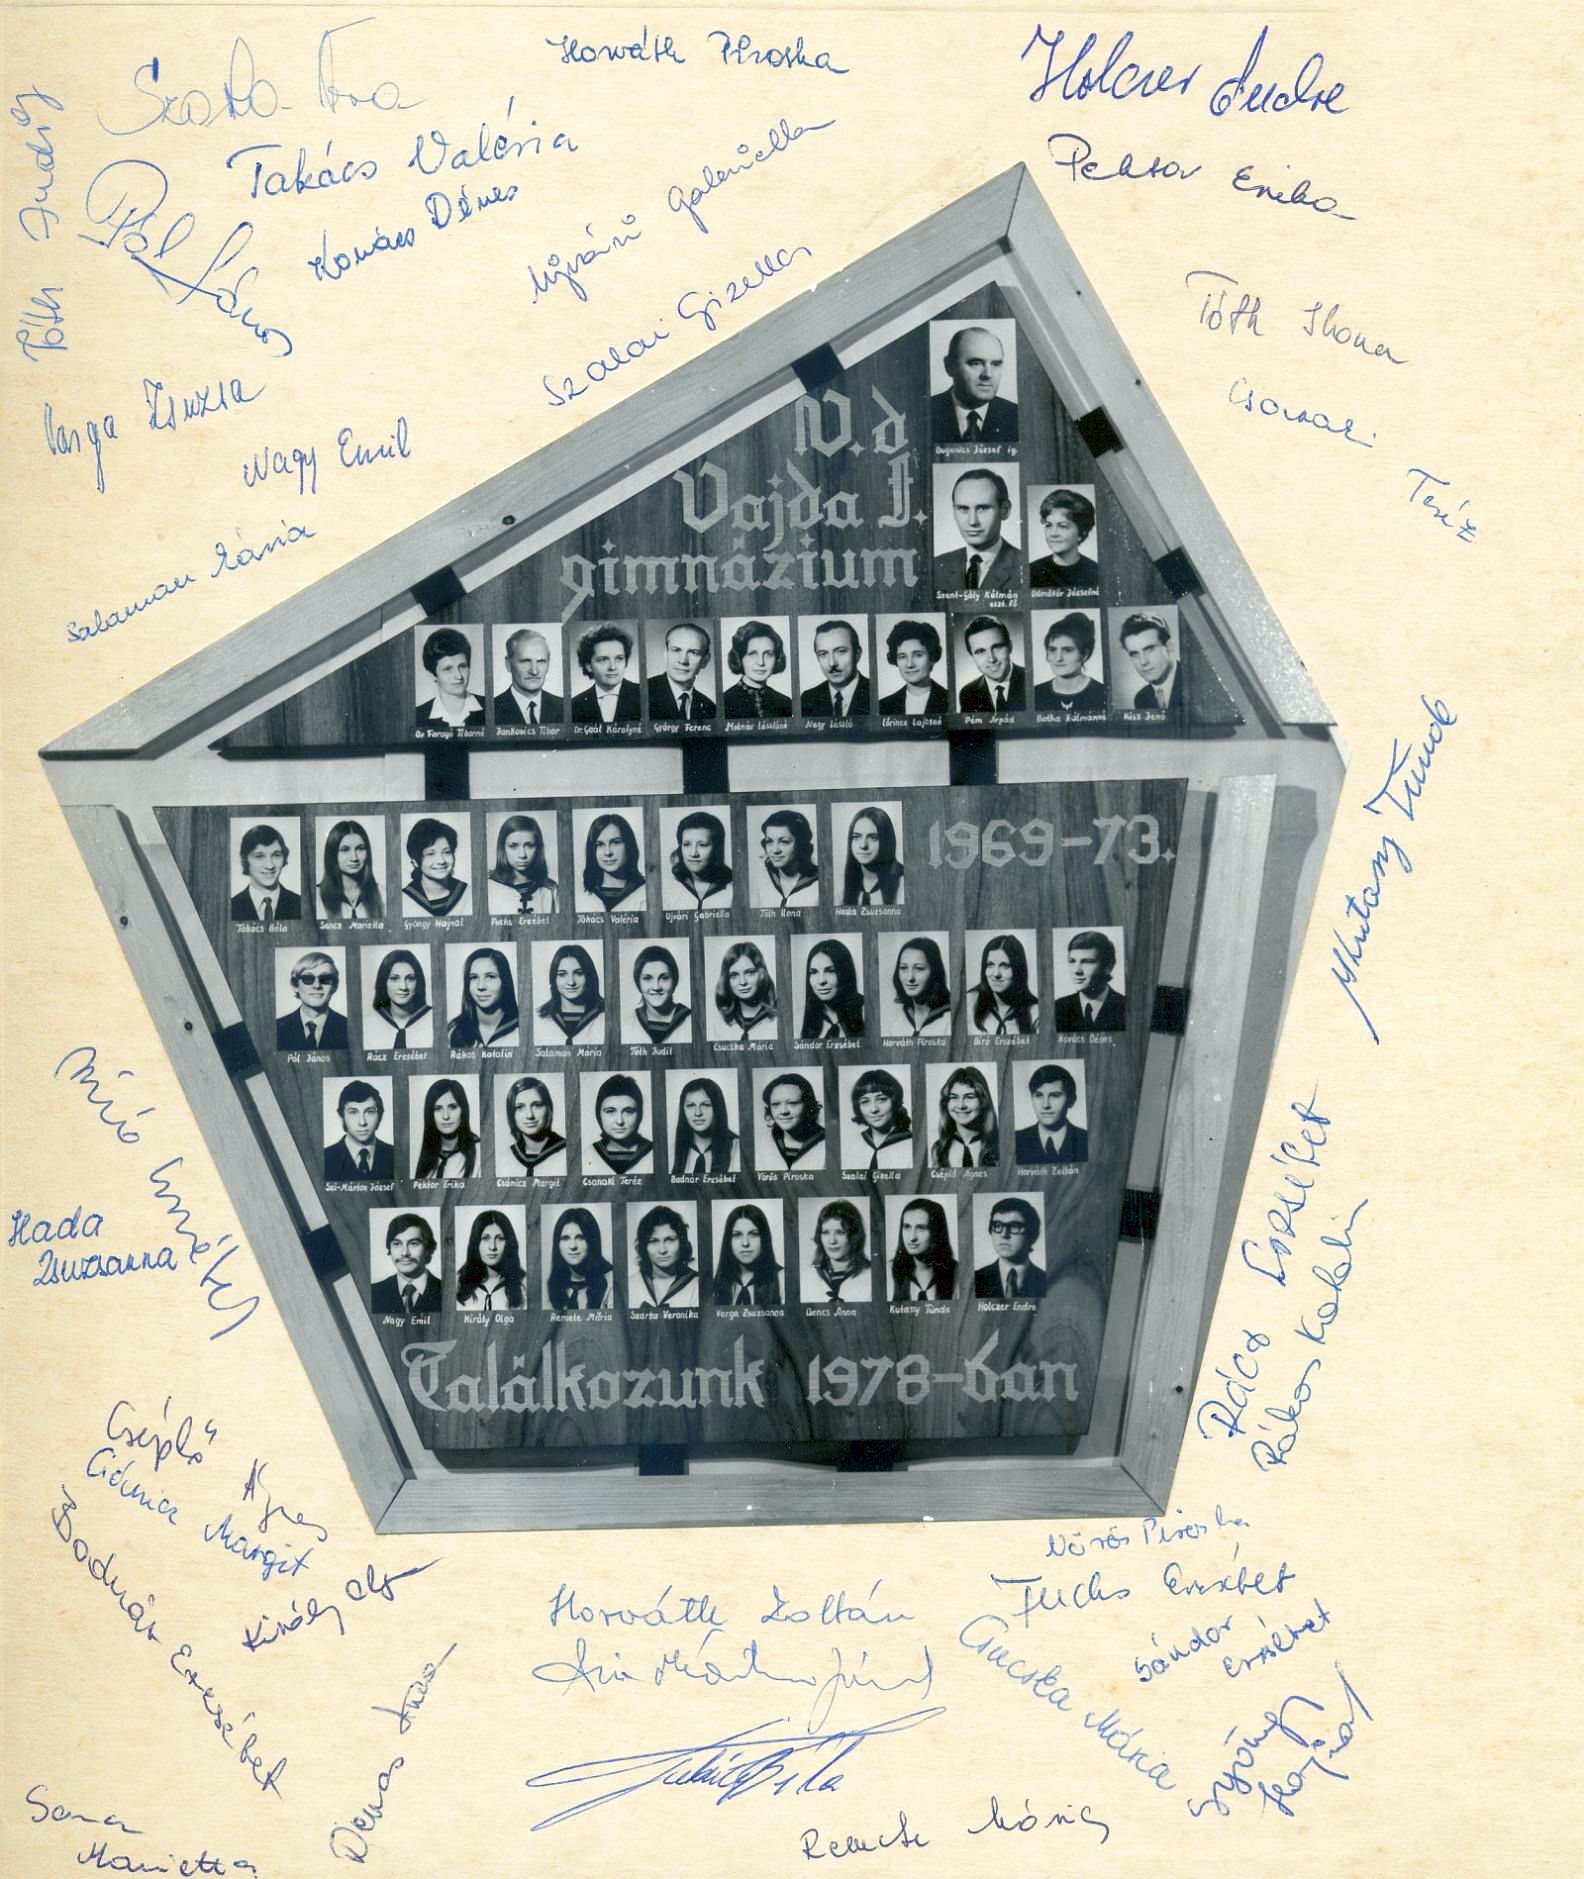 Horváth Piroska
Holczer Endre
Takács Valéria
Kovács Dénes
Pektor Erika
Tóth Judit
Pál János
Ujvári Gabriella
Szalai Gizella
Tóth Ilona
Varga Zsuzsa
Nagy Emil
Salamon Mária
Teréz
IV.d
Vajda J.
gimnázium
Dugonics József ig.
Szent-Gály Kálmán
oszt. fő
Dömötör Józsefné
Dr Faragó Tiborné
Jankovics Tibor
Dr. Gaál Károlyné
György Ferenc
Molnár Lászlóné
Nagy László
Lőrincz Lajosné
Pém Árpád
Botka Kálmánné
Kiss Jenő
1969-73.
Takács Béla
Gyöngy Hajnal
Fuchs Erzsébet
Takács Valéria
Ujvári Gabriella
Tóth Ilona
Hada Zsuzsanna
Pál János
Rácz Erzsébet
Rákos Katalin
Salamon Mária
Tóth Judit
Csuczka Mária
Sándor Erzsébet
Horváth Piroska
Bíró Erzsébet
Kovács Dénes
Szi-Márton József
Pektor Erika
Csánicz Margit
Csanaki Teréz
Bodnár Erzsébet
Vörös Piroska
Szalai Gizella
Cséplő Ágnes
Horváth Zoltán
Nagy Emil
Király Olga
Remete Mária
Szarka Veronika
Varga Zsuzsanna
Dencs Anna
Kutassy Tünde
Holczer Endre
Találkozunk 1978-ban
Kutassy Tünde
Hada
Zsuzsanna
Rácz Erzsébet
Rákos Katalin
Cséplő Ágnes
Margit
Bodnár Erzsébet
Király Olga
Horváth Zoltán
Vörös Piroska
Fuchs Erzsébet
Sándor
Erzsébet
Csuczka Mária
Gyöngy
Hajnal
Marietta
Remete Mária